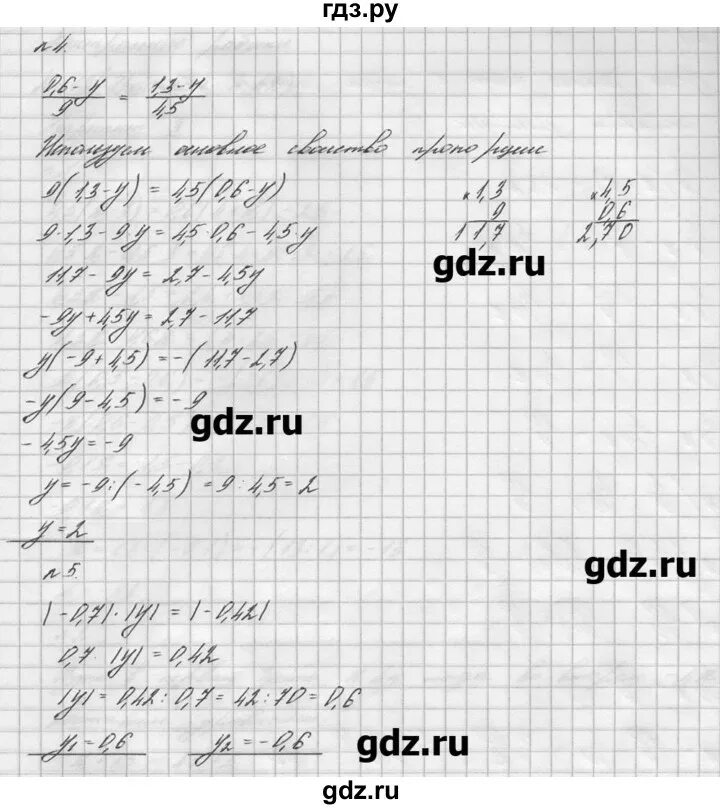 гдз.ру
№4.
(0,6-y)/9 = (1,3-y)/4,5
Используем основное свойство пропорции
9(1,3-y) = 4,5(0,6-y)
×1,3
9
11,7
×4,5
0,6
2,70
9·1,3-9y = 4,5·0,6-4,5·y
gdz.ru
11,7-9y = 2,7-4,5y
-9y+4,5y = 2,7-11,7
y(-9+4,5) = -(11,7-2,7)
-y(9-4,5) = -9
gdz.ru
-4,5y = -9
y = -9:(-4,5) = 9:4,5 = 2
y = 2
gdz.ru
№5.
|-0,7|·|y| = |-0,42|
0,7·|y| = 0,42
|y| = 0,42:0,7 = 42:70 = 0,6
y₁ = 0,6 y₂ = -0,6
gdz.ru
gdz.ru